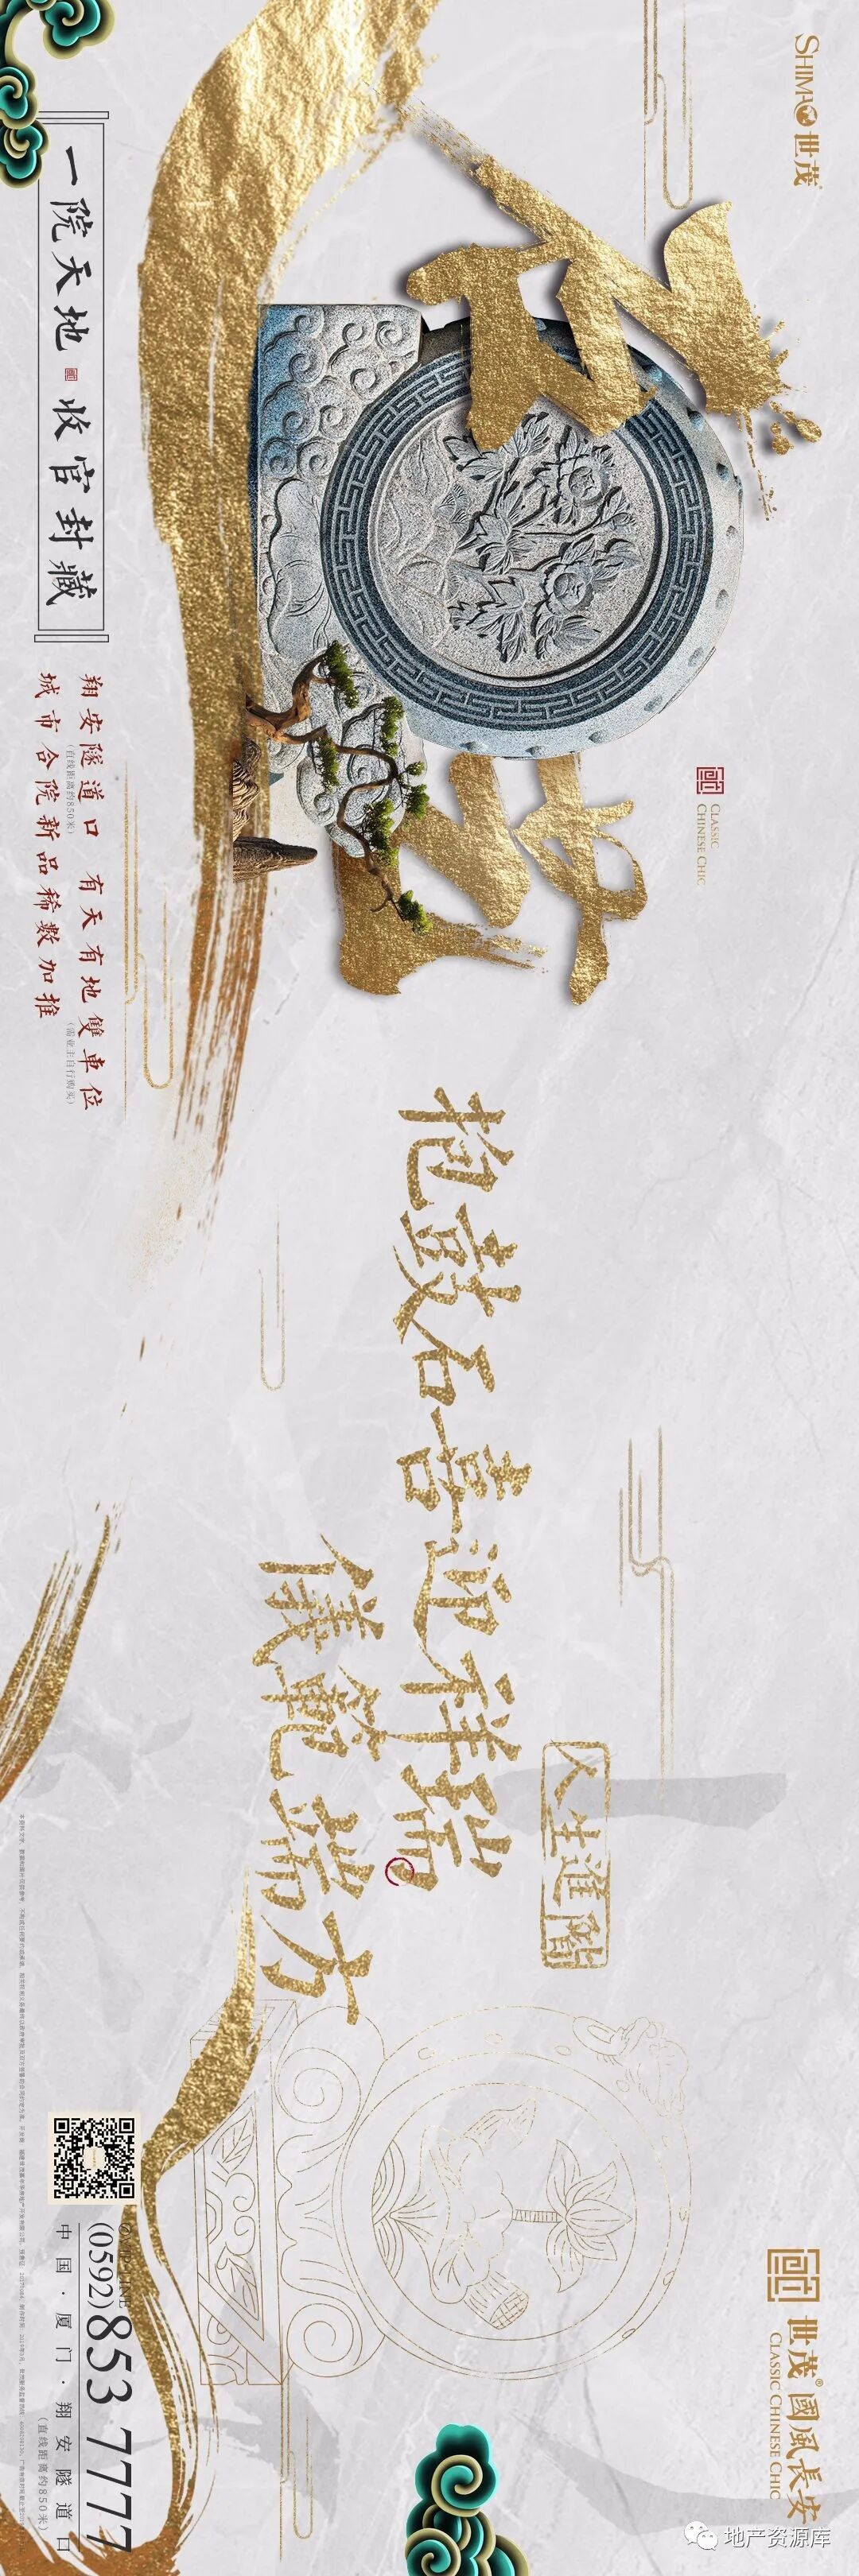 SHIMAO 世茂
CLASSIC
CHINESE CHIC
一院天地 收官封藏
翔安隧道口 有天有地雙車位
(直线距离约850米)
(需业主自行购买)
城市合院新品稀数加推
人生進階
抱鼓石喜迎祥瑞
儀範端方
世茂®國風長安
CLASSIC CHINESE CHIC
VIP LINE
(0592)853 7777
中国·厦门·翔安隧道口
(直线距离约850米)
地产资源库